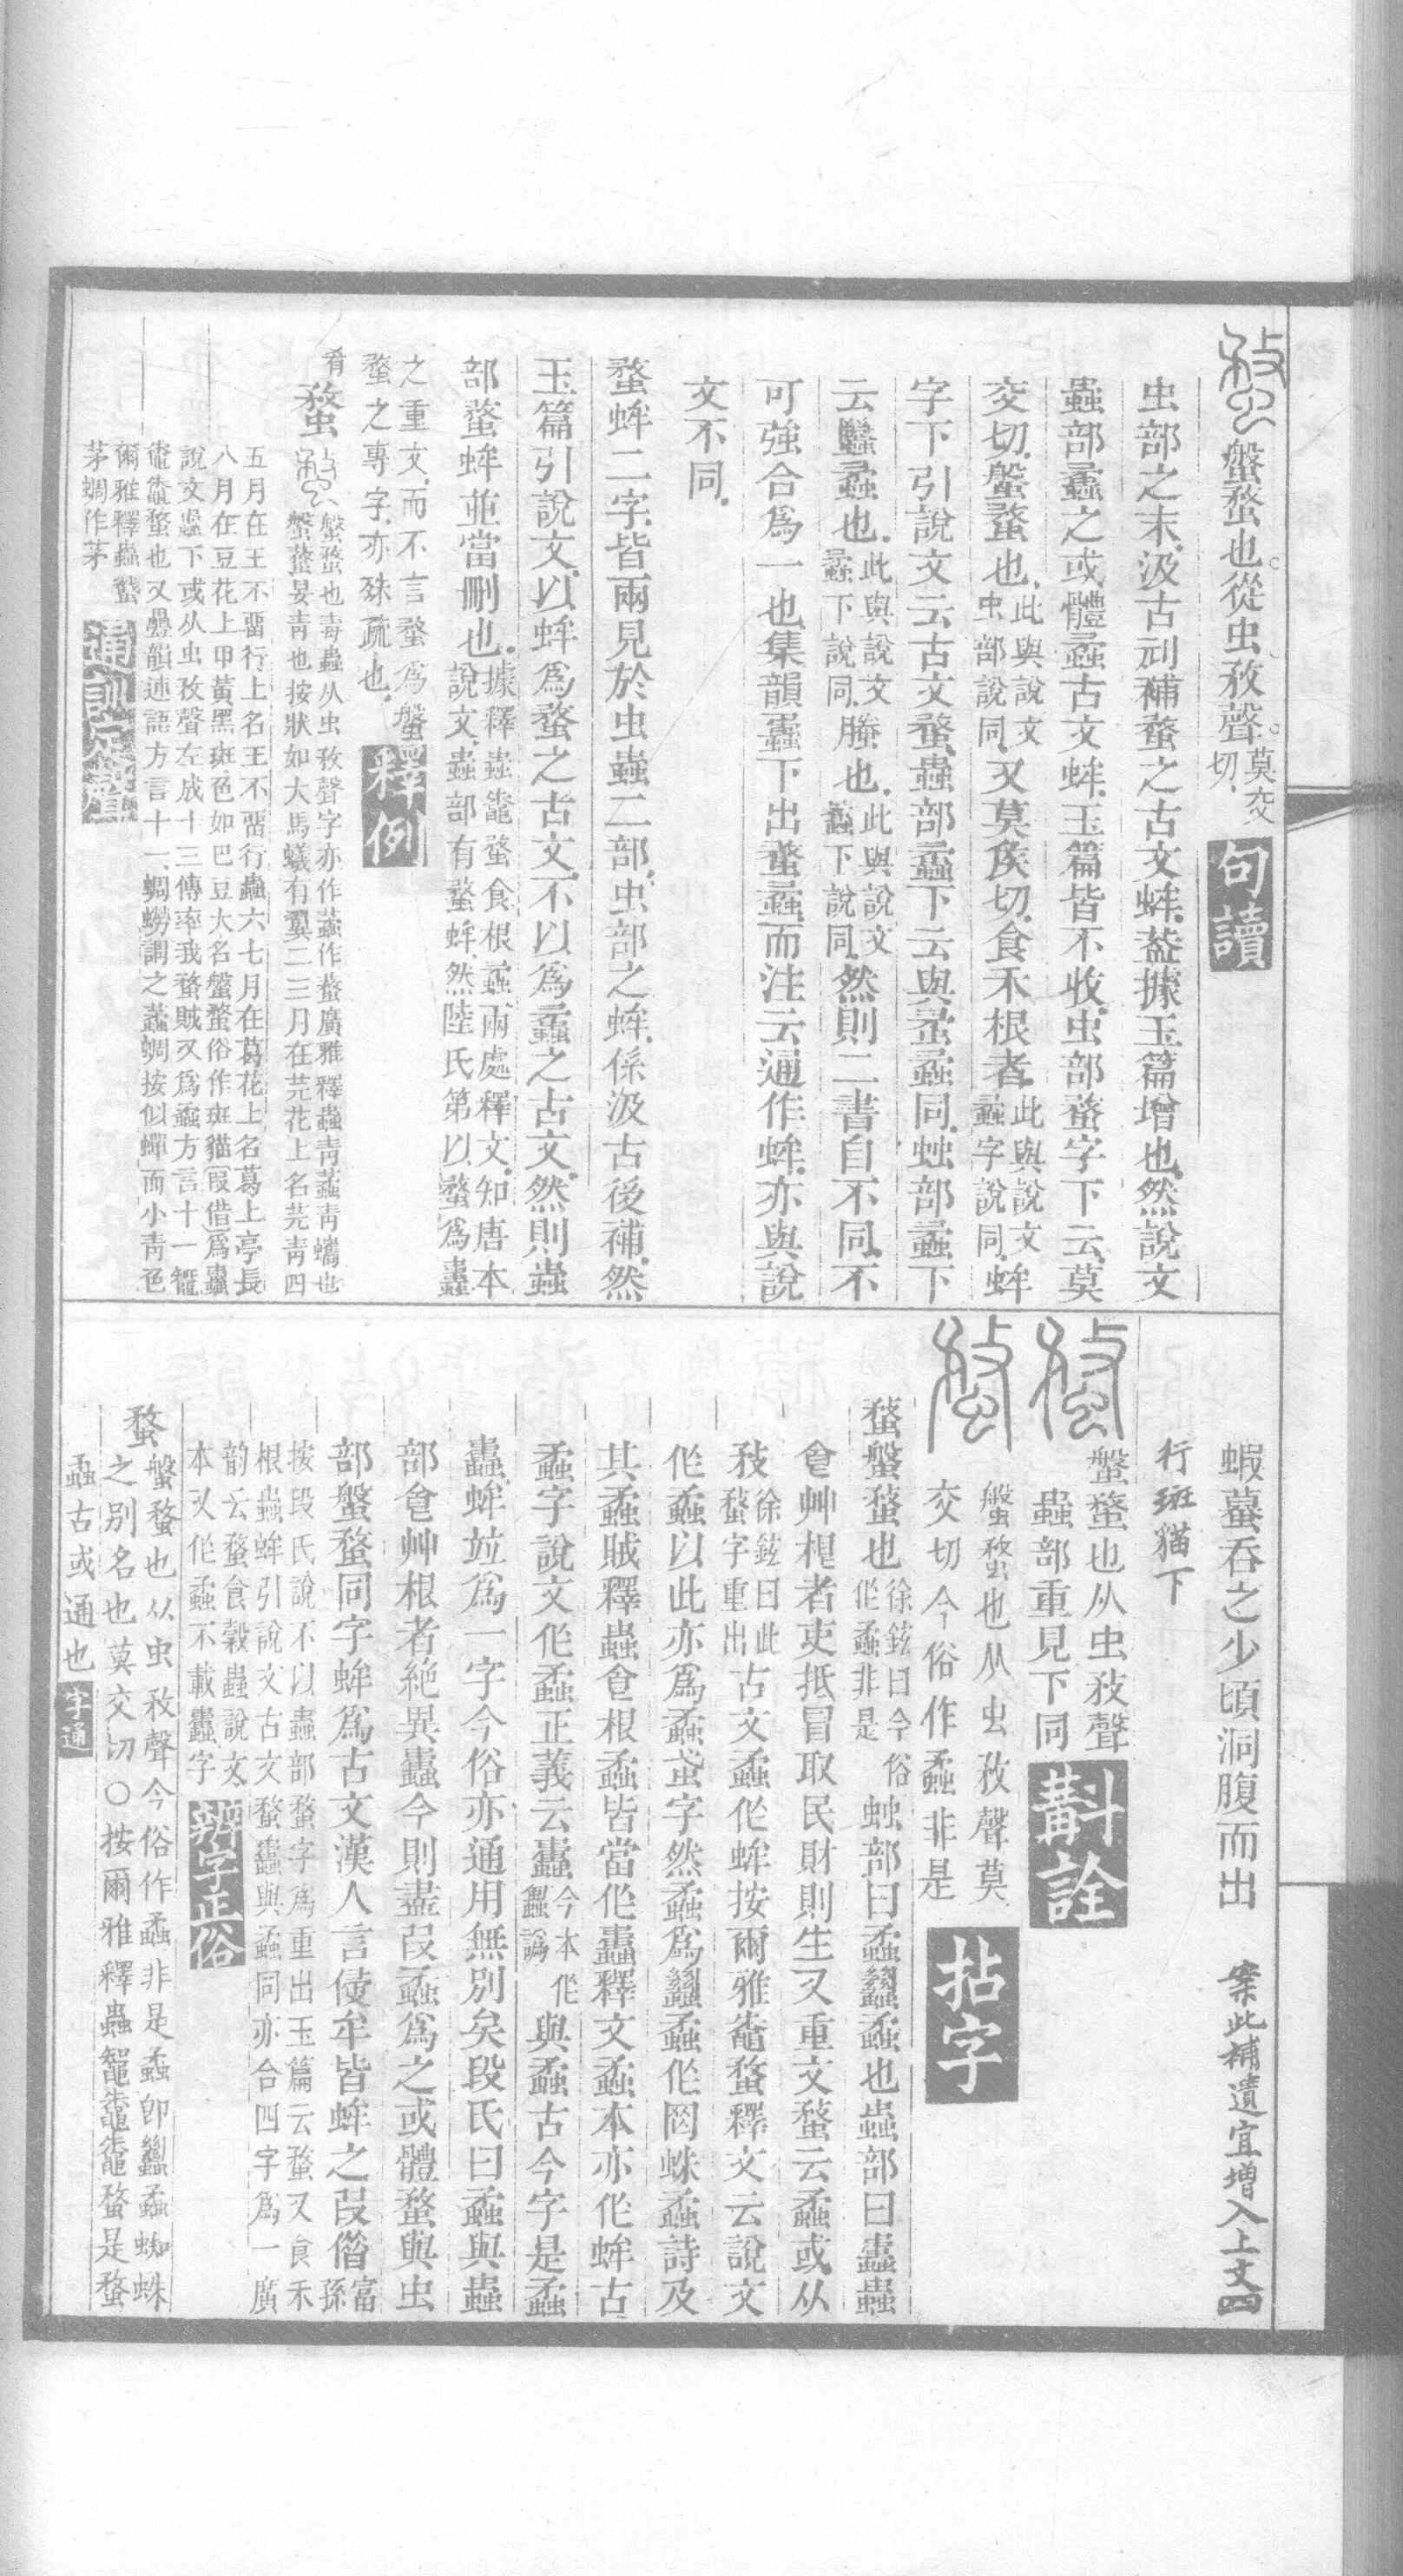 盤蝥也從虫敄聲莫交切句讀
虫部之末汲古刓補蝥之古文蛑葢據玉篇增也然說文
蟲部蟊之或體蝥古文蛑玉篇皆不收虫部蝥字下云莫
交切盤蝥也此與說文虫部說同又莫侯切食禾根者此與說文蟊字說同蛑
字下引說文云古文蝥蟲部蟊下云與蛑蝥同䖵部蟊下
云蠿蟊也此與說文蟊下說同螣也此與說文蟊下說同然則二書自不同不
可強合爲一也集韻蟊下出蝥蟊而注云通作蛑亦與說
文不同
蝥蛑二字皆兩見於虫蟲二部虫部之蛑係汲古後補然
玉篇引說文以蛑爲蝥之古文不以爲蟊之古文然則蟲
部蝥蛑並當刪也據釋蟲鼄蝥食根蟊兩處釋文知唐本說文蟲部有蝥蛑然陸氏第以蝥爲蟊
之重文而不言蝥爲盤蝥之專字亦殊疏也釋例
肴蝥盤蝥也毒蟲从虫敄聲字亦作蟊作蝥廣雅釋蟲青蟊青蠵也
盤蝥晏青也按狀如大馬蟻有翼二三月在芫花上名芫青四
五月在王不畱行上名王不畱行蟲六七月在葛花上名葛上亭長
八月在豆花上甲黃黑斑色如巴豆大名盤蝥俗作斑貓叚借爲蟊
說文蟊下或从虫敄聲左成十三傳率我蝥賊又爲蟊方言十一鼅
鼄鼄蝥也又疊韻連語方言十一蜩蟧謂之蟊蜩按似蟬而小青色
爾雅釋蟲蠽茅蜩作茅通訓定聲
蝦蟇吞之少頃洞腹而出　案此補遺宜增入上文四
行斑貓下
盤蝥也从虫敄聲
蟲部重見下同斠詮
盤蝥也从虫敄聲莫
交切今俗作蟊非是拈字
蝥盤蝥也徐鉉曰今俗作蟊非是䖵部曰蟊蠿蟊也蟲部曰蟊蟲
食艸根者吏抵冒取民財則生又重文蝥云蟊或从
敄徐鉉曰此蝥字重出古文蟊作蛑按爾雅鼄蝥釋文云說文
作蟊以此亦爲蟊蛑字然蟊爲蠿蟊作罔蛛蟊詩及
其蟊賊釋蟲食根蟊皆當作蟊釋文蟊本亦作蛑古
蟊字說文作蟊正義云蟊今本作蠿譌與蟊古今字是蟊
蟊蛑竝爲一字今俗亦通用無別矣段氏曰蟊與蟲
部食艸根者絶異蟊今則盡叚蟊爲之或體蝥與虫
部盤蝥同字蛑爲古文漢人言侵牟皆蛑之叚僭富孫
按段氏說不以蟲部蝥字爲重出玉篇云蝥又食禾
根蟲蛑引說文古文蝥蟊與蟊同亦合四字爲一廣
韵云蝥食穀蟲說文
本又作蟊不載蟊字辨字正俗
蝥盤蝥也从虫敄聲今俗作蟊非是蟊卽蠿蟊蜘蛛
之別名也莫交切〇按爾雅釋蟲鼅鼄鼄蝥是蝥
蟊古或通也字通